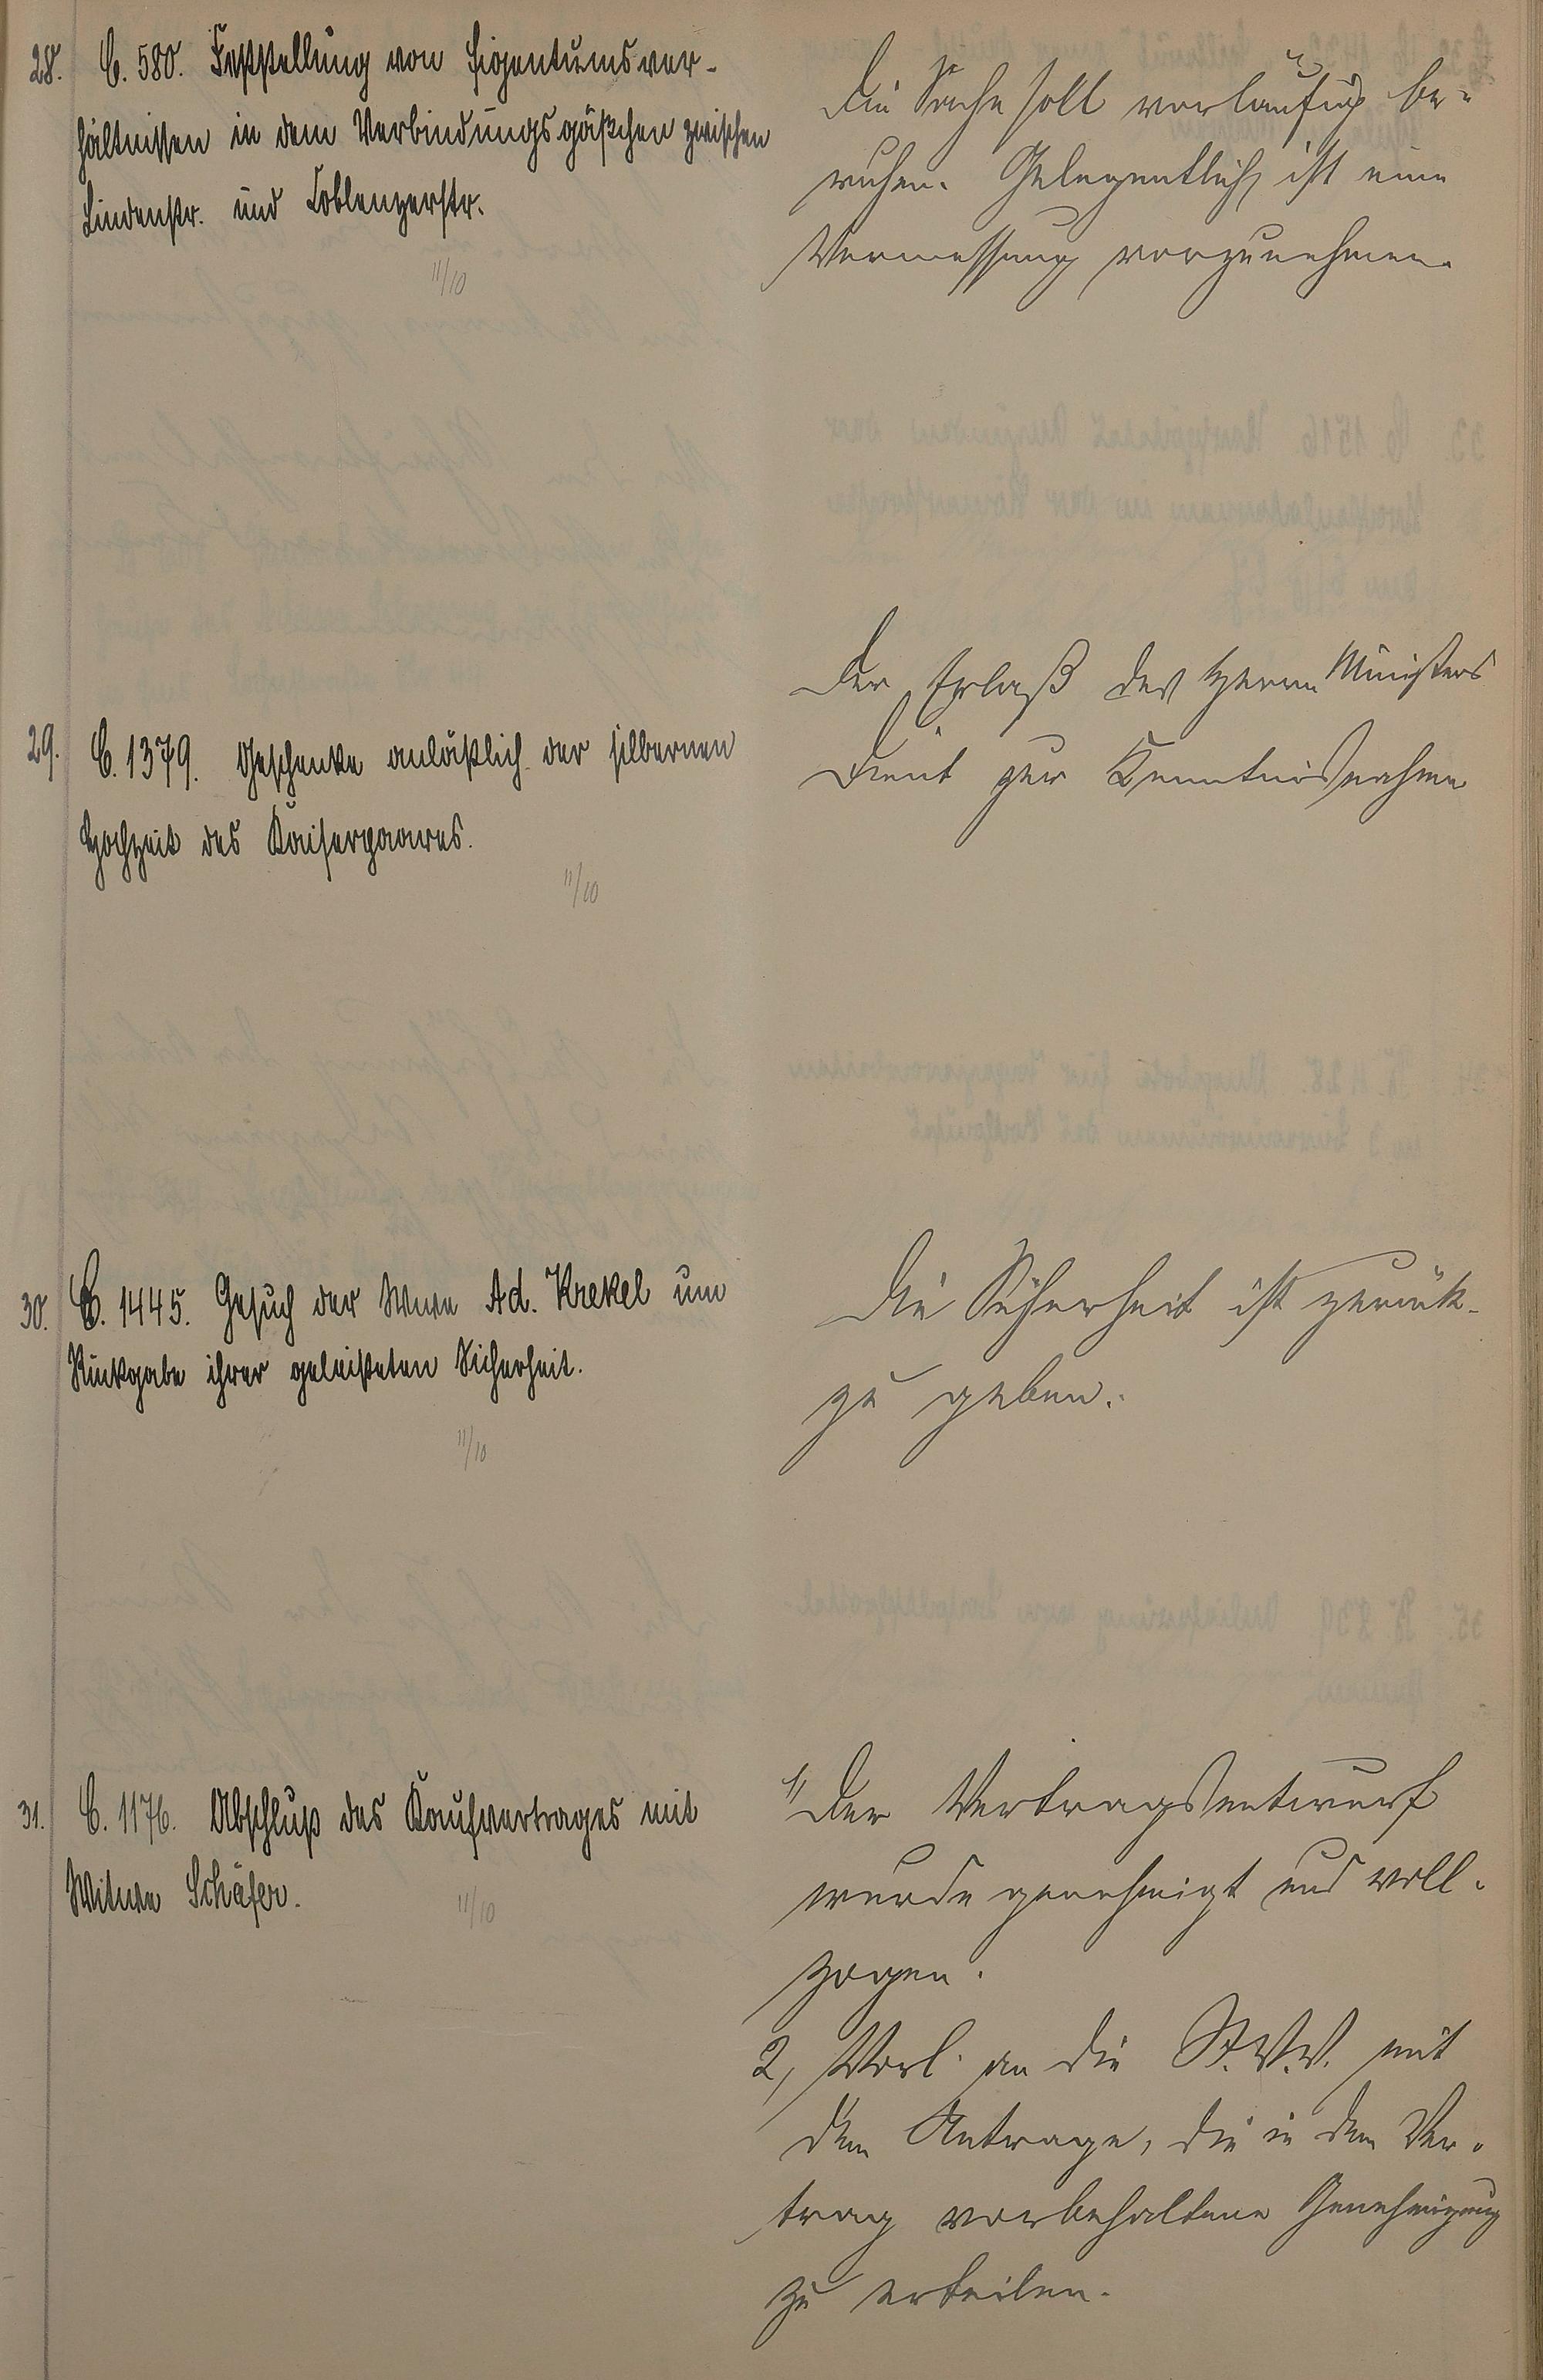 28. C. 580. Feststellung von Eigentumsver-
hältnissen in dem Verbindungsgäßchen zwischen
Lindenstr. und Coblenzerstr.
11/10
Die Sache soll vorläufig be-
ruhen. Gelegentlich ist eine
Vermessung vorzunehmen.
29. C. 1379. Geschenke anläßlich der silbernen
Hochzeit des Kaiserpaares.
11/10
Der Erlaß des Herrn Ministers
dient zur Kenntnisnahme
30. C. 1445. Gesuch der Wwe Ad. Krekel um
Rückgabe ihrer geleisteten Sicherheit.
11/10
Die Sicherheit ist zurück-
zu geben.
31. C. 1176. Abschluß des Kaufvertrages mit
Witwe Schäfer.
11/10
1) Der Vertragsentwurf
wurde genehmigt und voll-
zogen.
2, Vorl. an die St.V.V. mit
dem Antrage, die in dem Ver-
trag vorbehaltene Genehmigung
zu erteilen.